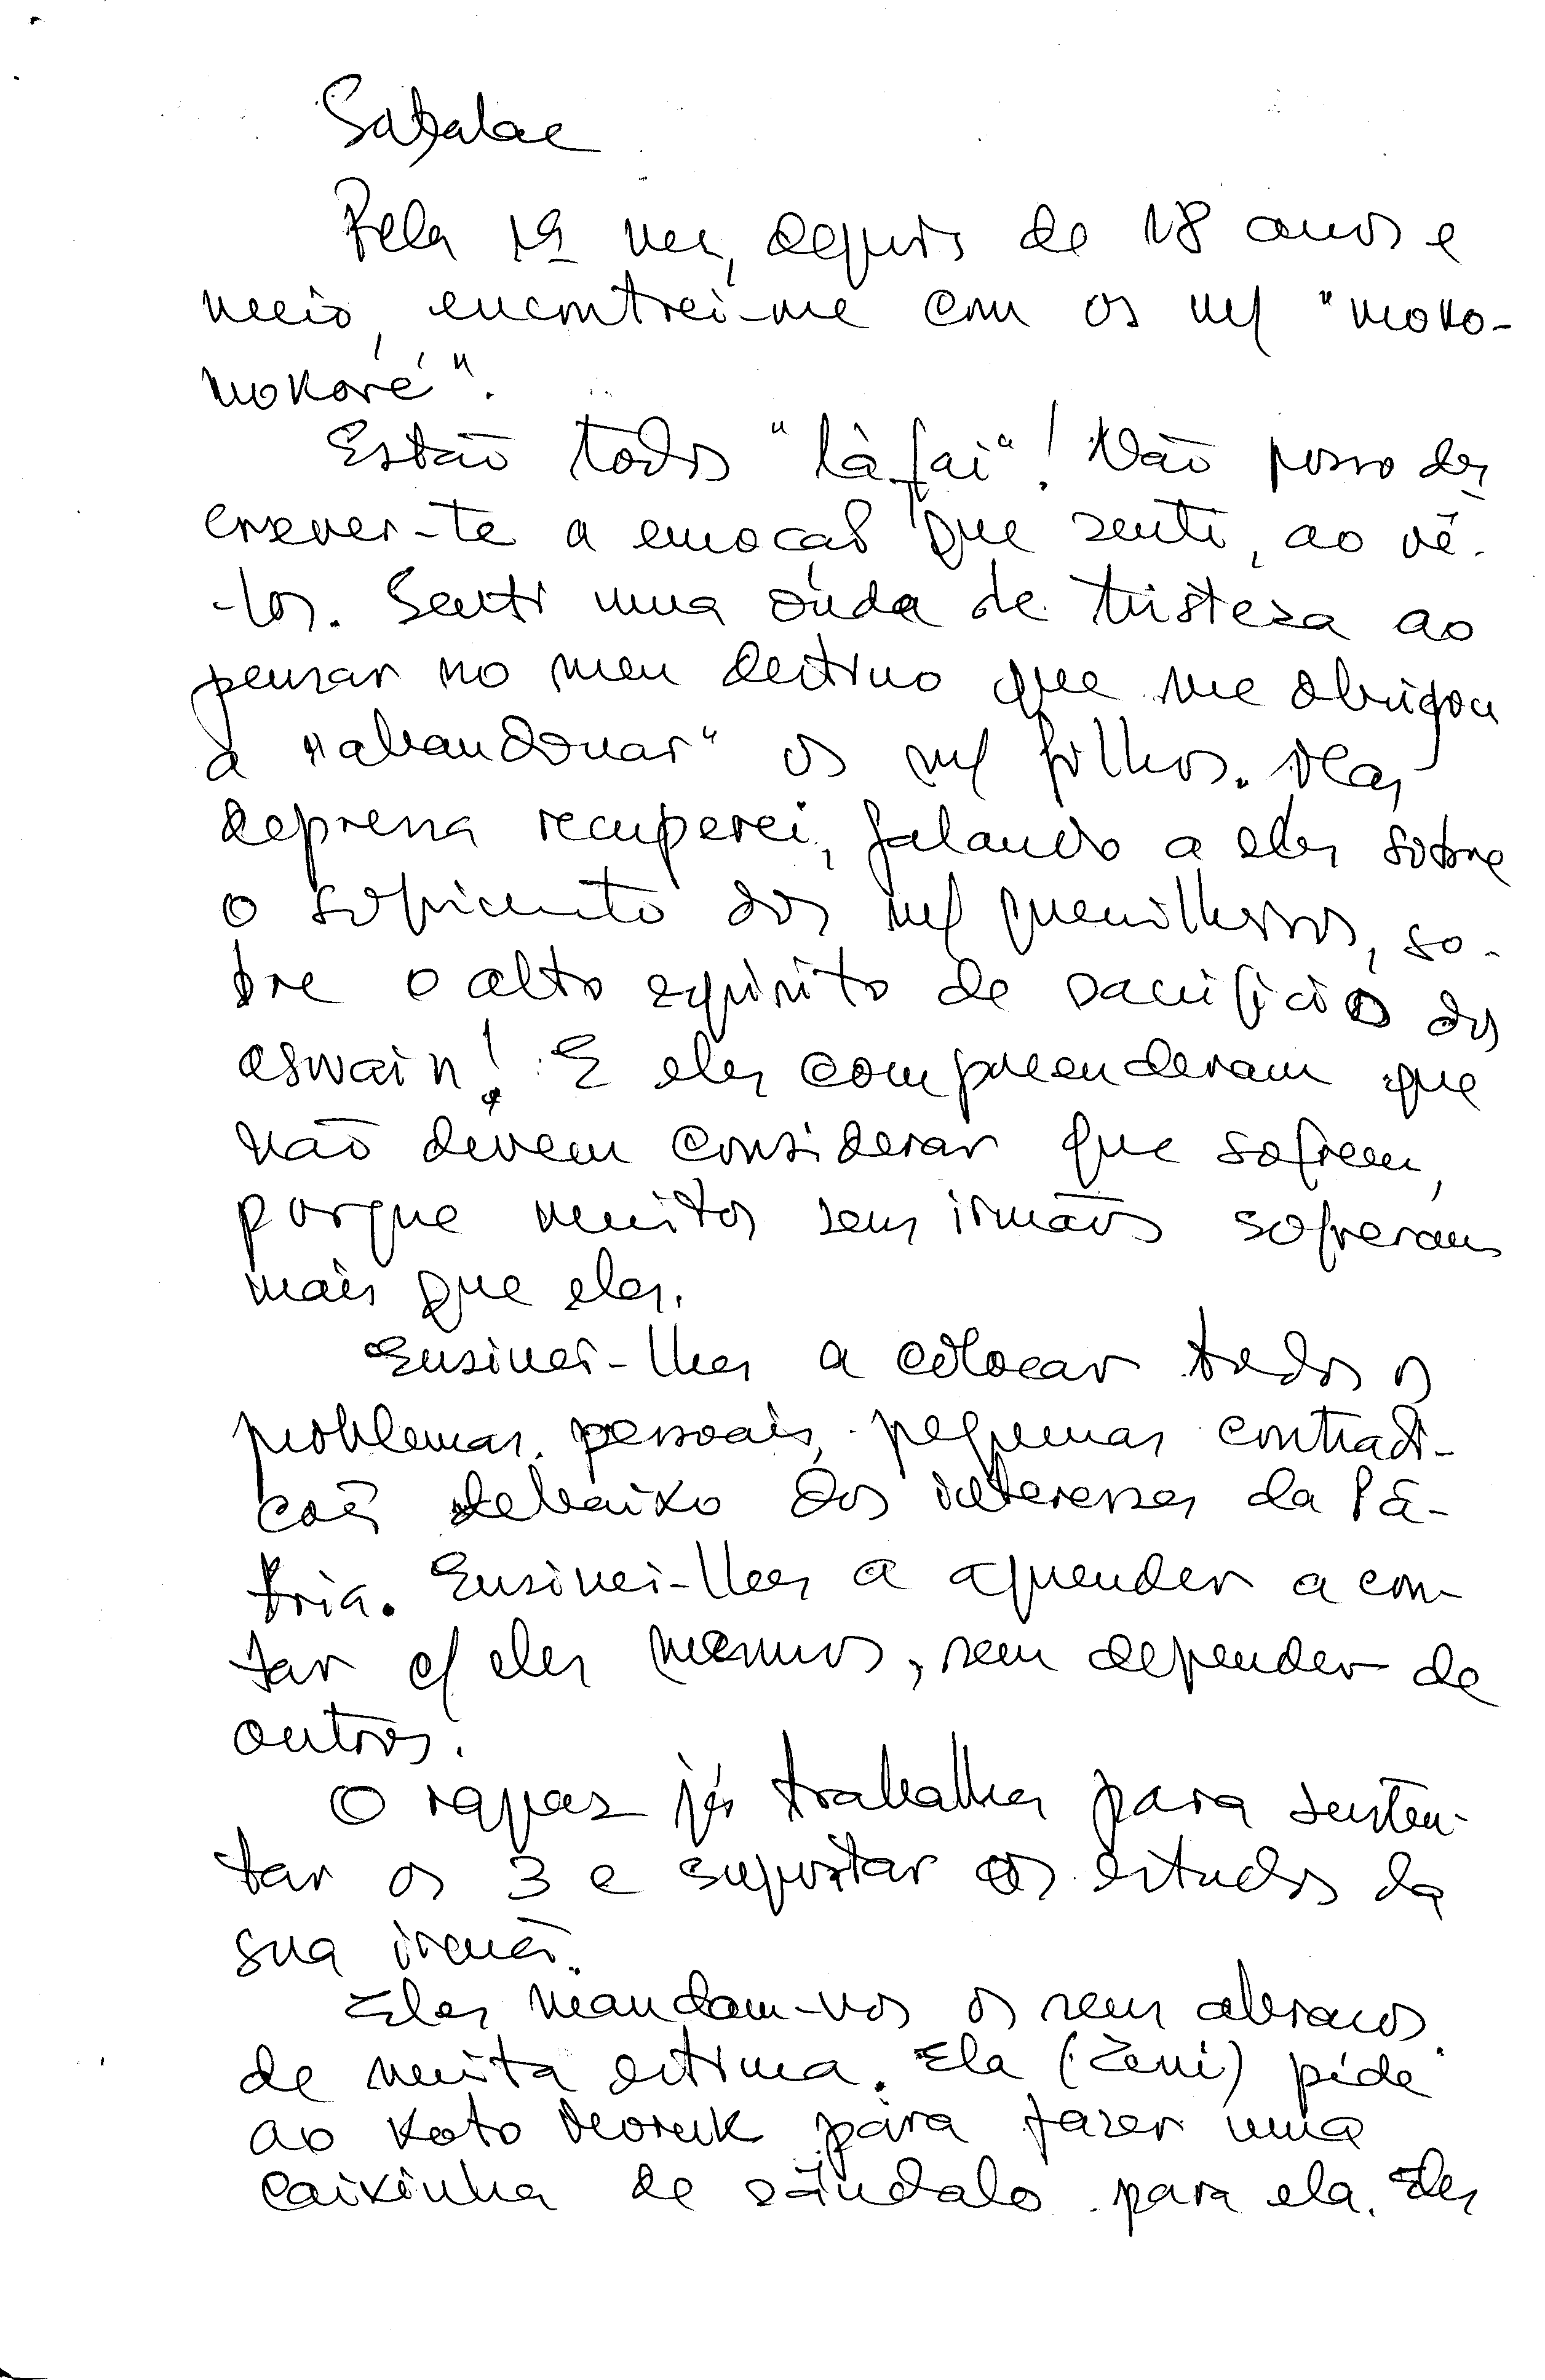 Sabalae
Pela 1ª vez, depois de 18 anos e
meio, encontrei-me com os m/ "moko-
mokoré".
Estão todos "làfai"! Não posso des
crever-te a emoção que senti, ao vê-
-los. Senti uma onda de tristeza ao
pensar no meu destino que me obrigou
a "abandonar" os m/ filhos. Mas
depressa recuperei, falando a eles sobre
o sofrimento dos m/ guerrilheiros, so-
bre o alto espírito de sacrifício dos
aswain! E eles compreenderam que
não devem considerar que sofrem,
porque muitos seus irmãos sofreram
mais que eles.
Ensinei-lhes a colocar todos os
problemas pessoais, pequenas contradi-
ções debaixo dos interesses da Pá-
tria. Ensinei-lhes a aprender a con-
tar c/ eles mesmos, sem depender de
outros.
O rapaz já trabalha para susten-
tar os 3 e suportar os estudos da
sua irmã.
Eles mandam-vos os seus abraços
de muita estima. Ela (Zeni) pede
ao Koto Moruk para fazer uma
caixinha de sândalo para ela. Eles